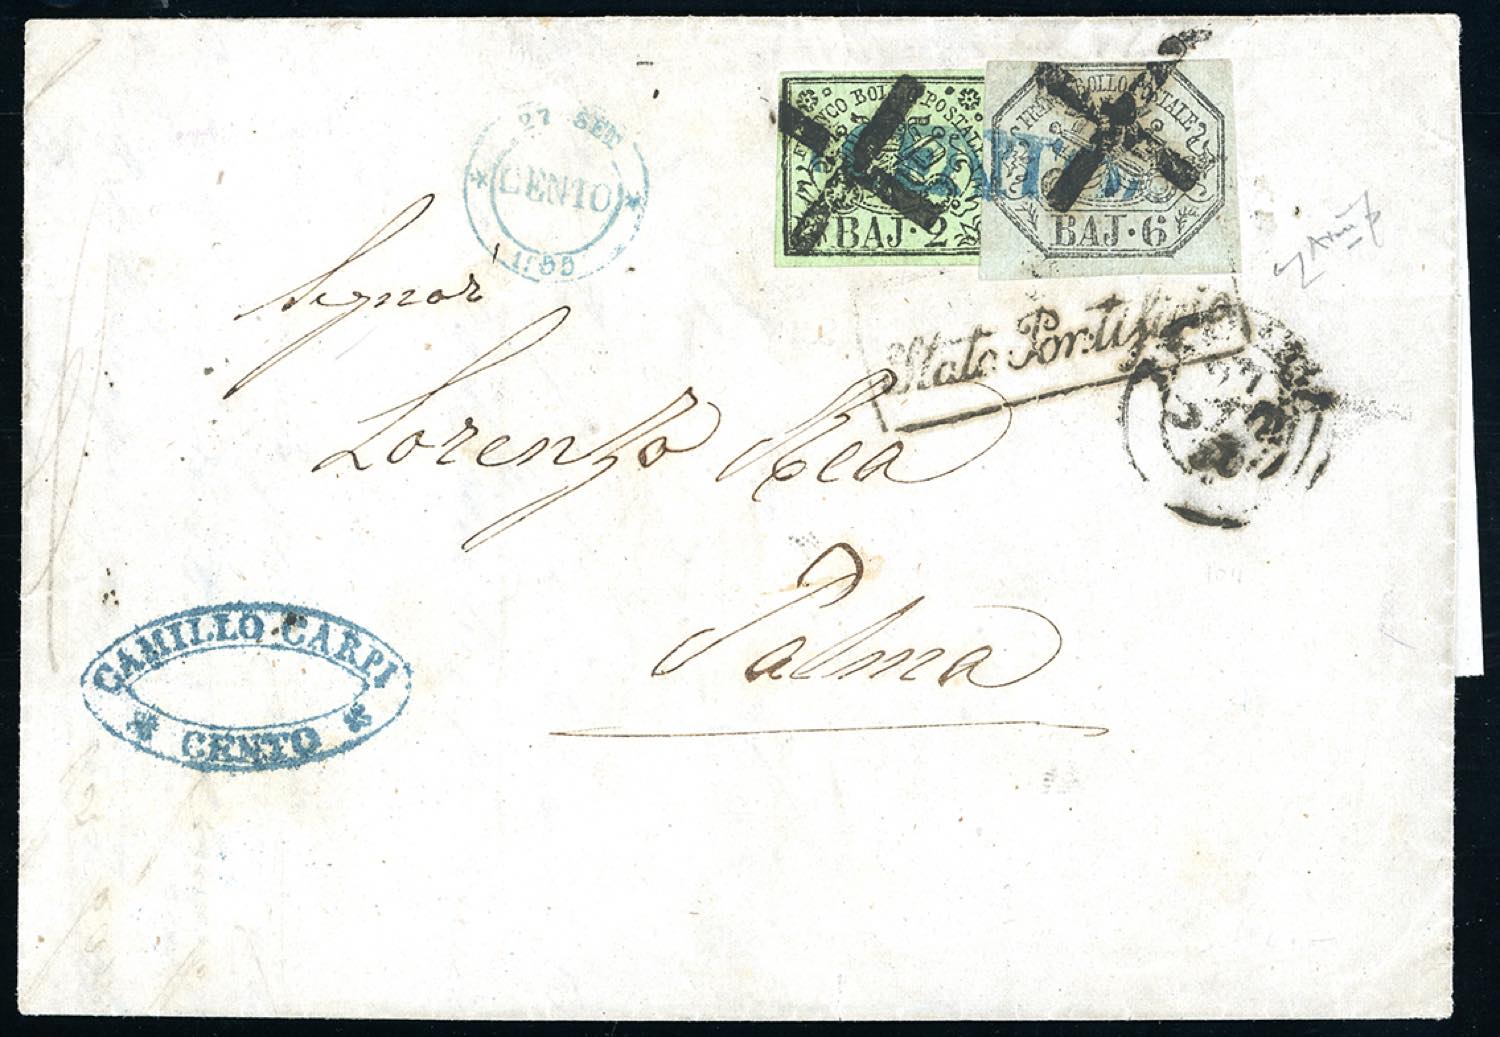 27 SET
CENTO
1855
FRANCO BOLLO POSTALE
BAJ·2
FRANCO BOLLO POSTALE
BAJ·6
Stato Pontificio
Signor
Lorenzo Rea
Palma
CAMILLO CARPI
CENTO